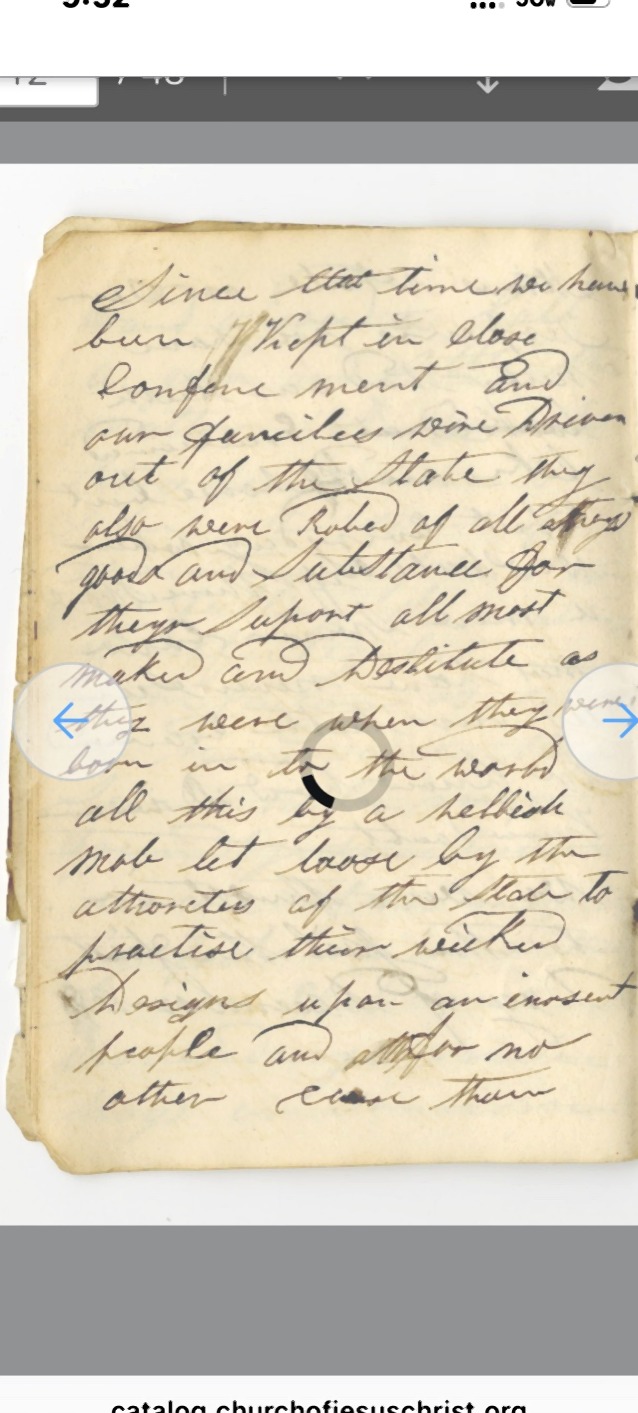 12 / 48
Since that time we have
bein Kept in Close
Confine ment And
our families wire Driven
out of the State they
also were Robed of all theyr
goods and Substance for
theyr Suport all most
naked and Destitute as
they were when they were
born in to the world
all this by a hellish
Mob let loose by the
athoreties of the State to
practise thier wicked
Designs upon an inosent
people and all for no
other cause than
catalog.churchofjesuschrist.org